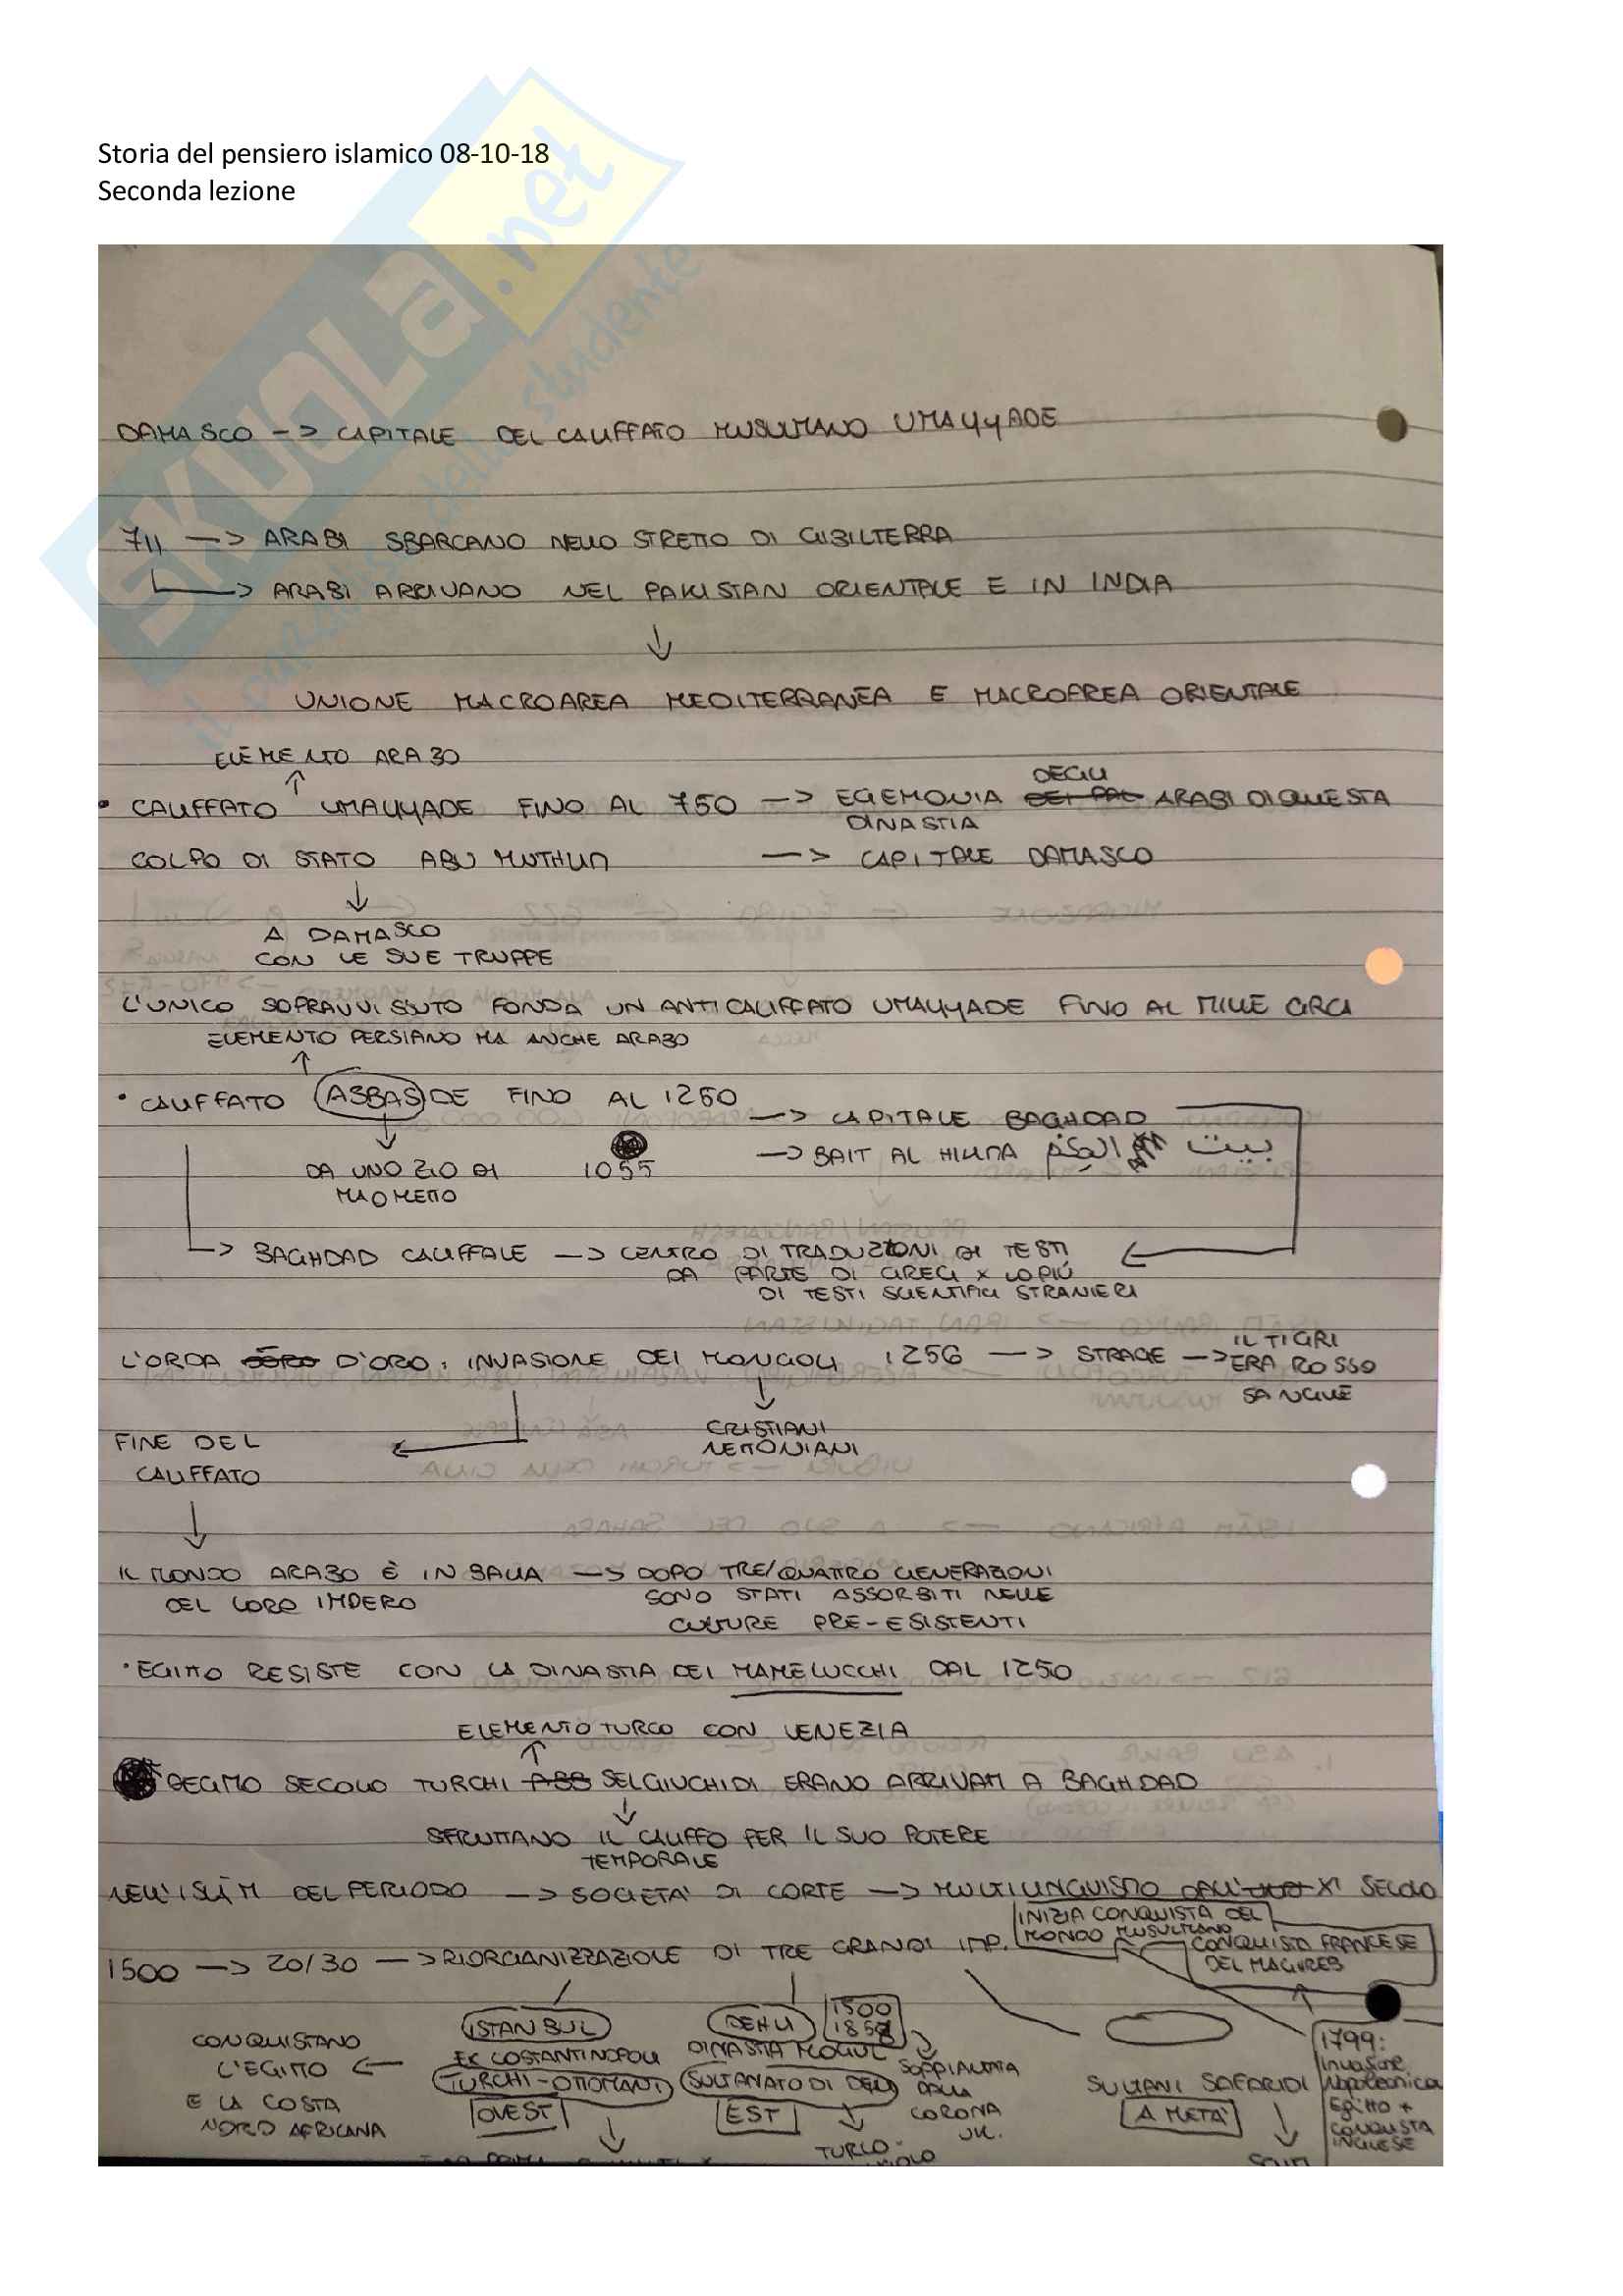 Storia del pensiero islamico 08-10-18
Seconda lezione
SKUOLA.net
il paradiso dello studente
DAMASCO -> CAPITALE DEL CALIFFATO MUSULMANO UMAYYADE
711 -> ARABI SBARCANO NELLO STRETTO DI GIBILTERRA
-> ARABI ARRIVANO NEL PAKISTAN ORIENTALE E IN INDIA
↓
UNIONE MACROAREA MEDITERRANEA E MACROAREA ORIENTALE
ELEMENTO ARABO
↑
• CALIFFATO UMAYYADE FINO AL 750 -> EGEMONIA DEGLI ARABI DI QUESTA
DINASTIA
COLPO DI STATO ABU -> CAPITALE DAMASCO
↓
A DAMASCO
CON LE SUE TRUPPE
L'UNICO SOPRAVVISSUTO FONDA UN ANTICALIFFATO UMAYYADE FINO AL MILLE CIRCA
ELEMENTO PERSIANO MA ANCHE ARABO
↑
• CALIFFATO ABBASIDE FINO AL 1250
-> CAPITALE BAGHDAD
-> BAIT AL HIKMA بيت
DA UNO ZIO DI 1055
MAOMETTO
-> BAGHDAD CALIFFALE -> CENTRO DI TRADUZIONI DI TESTI
DA PARTE DI GRECI x LO PIÙ
DI TESTI SCIENTIFICI STRANIERI
L'ORDA D'ORO: INVASIONE DEI MONGOLI 1256 -> STRAGE -> IL TIGRI
ERA ROSSO
SANGUE
CRISTIANI
FINE DEL
CALIFFATO
↓
IL MONDO ARABO È IN BALIA -> DOPO TRE/QUATTRO GENERAZIONI
DEL LORO IMPERO SONO STATI ASSORBITI NELLE
CULTURE PRE-ESISTENTI
• EGITTO RESISTE CON LA DINASTIA DEI MAMELUCCHI DAL 1250
ELEMENTO TURCO CON VENEZIA
↑
DECIMO SECOLO TURCHI SELGIUCHIDI ERANO ARRIVATI A BAGHDAD
↓
SFRUTTANO IL CALIFFO PER IL SUO POTERE
TEMPORALE
NELL'ISLĀM DEL PERIODO -> SOCIETA' DI CORTE -> MULTILINGUISMO DALL' XI SECOLO
1500 -> 20/30 -> RIORGANIZZAZIONE DI TRE GRANDI IMP.
INIZIA CONQUISTA DEL
MONDO MUSULMANO
CONQUISTA FRANCESE
DEL MAGHREB
ISTANBUL
EX COSTANTINOPOLI
TURCHI-OTTOMANI
OVEST
CONQUISTANO
L'EGITTO
E LA COSTA
NORD AFRICANA
DEHLI
1500
DINASTIA MOGUL
SULTANATO DI DEHLI
EST
SOPPIANTATA
DALLA
CORONA
UK.
TURCO-
SULTANI SAFARIDI
A META'
1799:
Invasione
Napoleonica
Egitto +
CONQUISTA
INGLESE